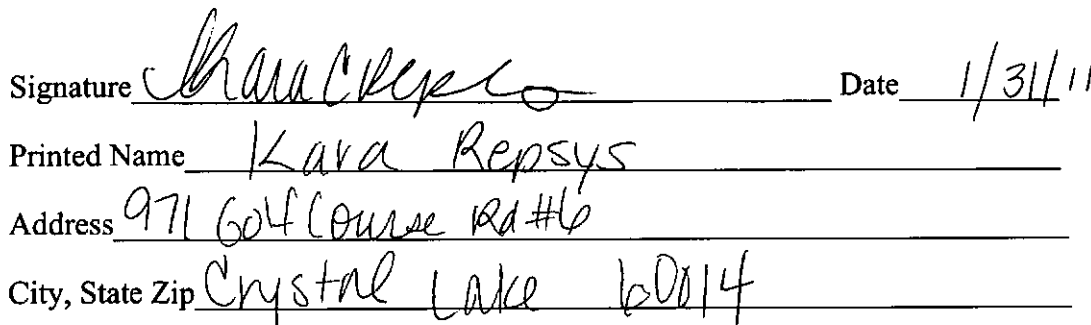 Signature Kara C Reps Date 1/31/11
Printed Name Kara Repsys
Address 971 Golf Course Rd #6
City, State Zip Crystal Lake 60014